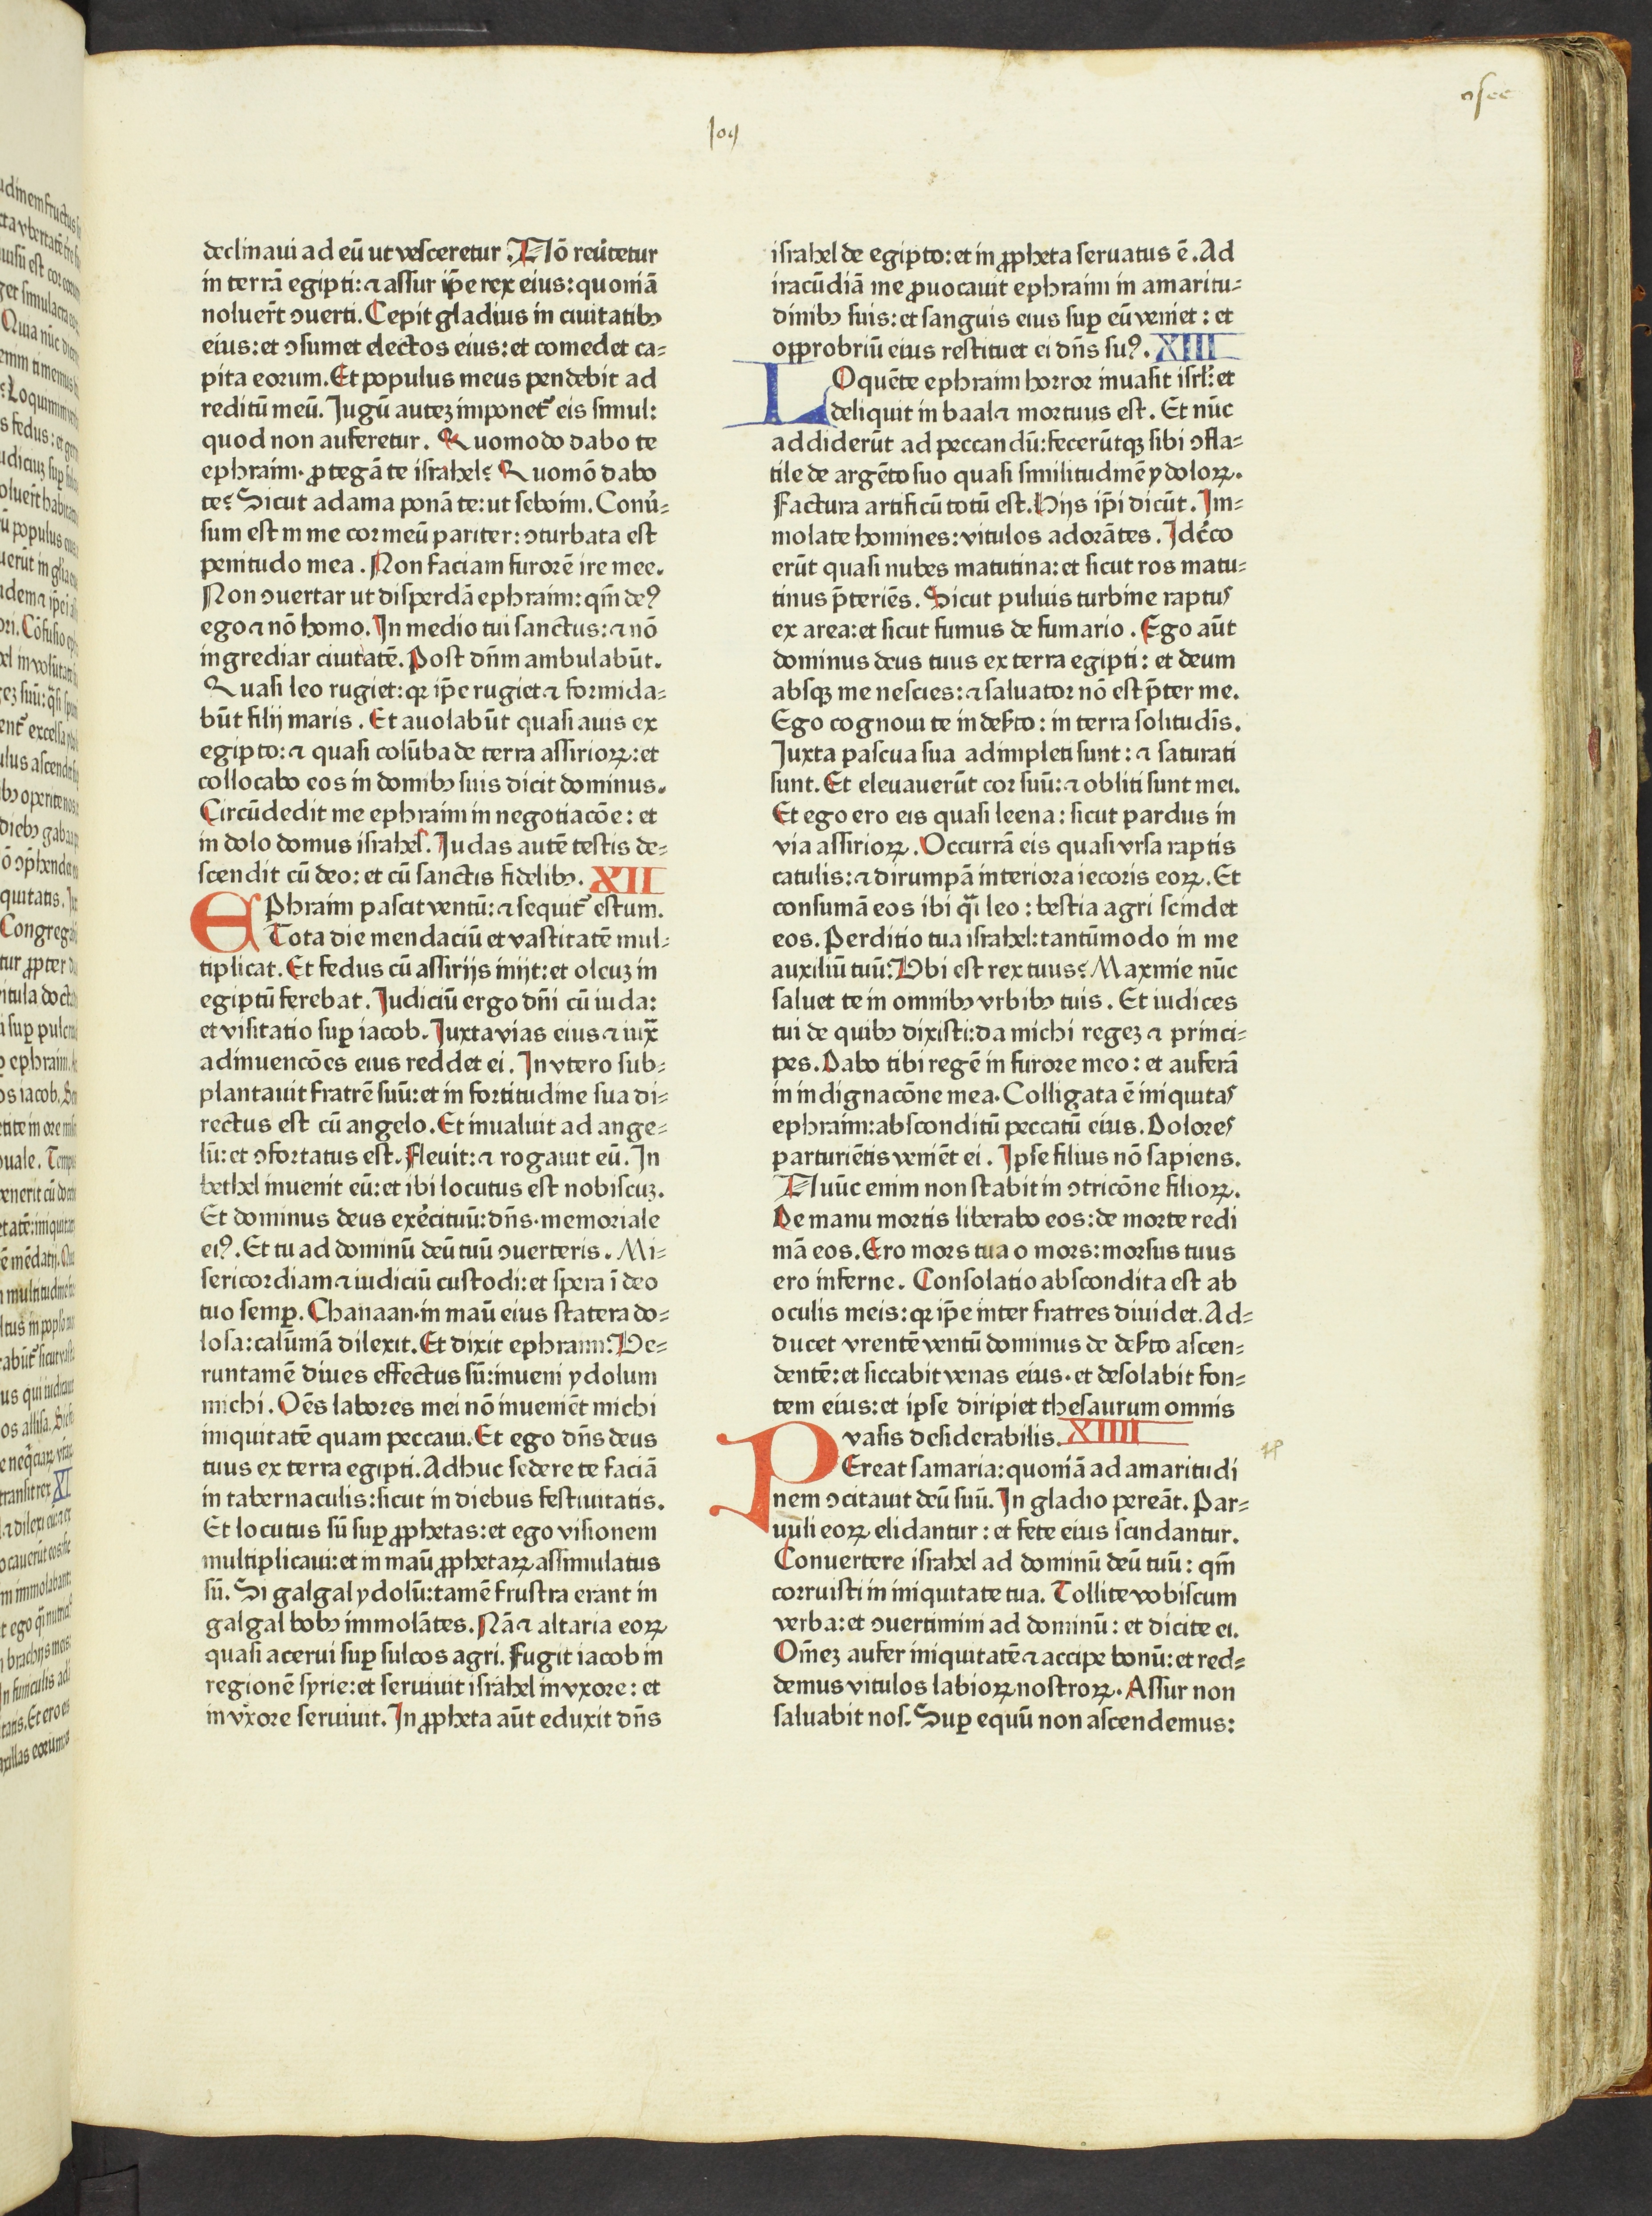 osee
declinaui ad eū ut vesceretur. Nō reu̇tetur
in terrā egipti: ⁊ assur ip̄e rex eius: quoniā
noluer̄t ꝯuerti. Cepit gladius in ciuitatibꝫ
eius: et ꝯsumet electos eius: et comedet ca⸗
pita eorum. Et populus meus pendebit ad
reditū meū. Jugū autez imponet᷑ eis simul:
quod non auferetur. Quomodo dabo te
ephraim· ꝓtegā te israhel? Quomō dabo
te? Sicut adama ponā te: ut seboim. Conu̇⸗
sum est in me cor meū pariter: ꝯturbata est
penitudo mea. Non faciam furorē ire mee.
Non ꝯuertar ut disperdā ephraim: qm̄ deꝰ
ego ⁊ nō homo. In medio tui sanctus: ⁊ nō
ingrediar ciuitatē. Post dn̄m ambulabūt.
Quasi leo rugiet: qꝛ ip̄e rugiet ⁊ formida⸗
būt filij maris. Et auolabūt quasi auis ex
egipto: ⁊ quasi colūba de terra assirioꝝ: et
collocabo eos in domibꝫ suis dicit dominus.
Circūdedit me ephraim in negotiacōe: et
in dolo domus israhel. Judas autē testis de⸗
scendit cū deo: et cū sanctis fidelibꝫ. XII
EPhraim pascit ventū: ⁊ sequit᷑ estum.
Tota die mendaciū et vastitatē mul⸗
tiplicat. Et fedus cū assirijs inijt: et oleuz in
egiptū ferebat. Judiciū ergo dn̄i cū iuda:
et visitatio suꝑ iacob. Juxta vias eius ⁊ iux̄
adinuencōes eius reddet ei. In vtero sub⸗
plantauit fratrē suū: et in fortitudine sua di⸗
rectus est cū angelo. Et inualuit ad ange⸗
lū: et ꝯfortatus est. Fleuit: ⁊ rogauit eū. In
bethel inuenit eū: et ibi locutus est nobiscuz.
Et dominus deus exėcituū: dn̄s· memoriale
eiꝰ. Et tu ad dominū deū tuū ꝯuerteris. Mi⸗
sericordiam ⁊ iudiciū custodi: et spera ī deo
tuo semꝑ. Chanaan· in maū eius statera do⸗
losa: calūmā dilexit. Et dixit ephraim: Ve⸗
runtamē diues effectus sū: inueni ydolum
michi. Oēs labores mei nō inueniēt michi
iniquitatē quam peccaui. Et ego dn̄s deus
tuus ex terra egipti. Adhuc sedere te faciā
in tabernaculis: sicut in diebus festiuitatis.
Et locutus sū suꝑ ꝓphetas: et ego visionem
multiplicaui: et in maū ꝓphetaꝝ assimulatus
sū. Si galgal ydolū: tamē frustra erant in
galgal bobꝫ immolātes. Nā ⁊ altaria eoꝝ
quasi acerui suꝑ sulcos agri. Fugit iacob in
regionē syrie: et seruiuit israhel in vxore: et
in vxore seruiuit. In ꝓpheta aūt eduxit dn̄s
israhel de egipto: et in ꝓpheta seruatus ē. Ad
iracūdiā me ꝓuocauit ephraim in amaritu⸗
dinibꝫ suis: et sanguis eius suꝑ eū veniet: et
opꝓbriū eius restituet ei dn̄s suꝰ. XIII
LOquēte ephraim horror inuasit isrl̄: et
deliquit in baal ⁊ mortuus est. Et nūc
addiderūt ad peccandū: fecerūtqꝫ sibi ꝯfla⸗
tile de argēto suo quasi similitudinē ydoloꝝ.
Factura artificū totū est. Hijs ip̄i dicūt. Im⸗
molate homines: vitulos adorātes. Idc̄co
erūt quasi nubes matutina: et sicut ros matu⸗
tinus p̄teriēs. Sicut puluis turbine raptus
ex area: et sicut fumus de fumario. Ego aūt
dominus deus tuus ex terra egipti: et deum
absqꝫ me nescies: ⁊ saluator nō est p̄ter me.
Ego cognoui te in deẜto: in terra solitudīs.
Juxta pascua sua adimpleti sunt: ⁊ saturati
sunt. Et eleuauerūt cor suū: ⁊ obliti sunt mei.
Et ego ero eis quasi leena: sicut pardus in
via assirioꝝ. Occurrā eis quasi vrsa raptis
catulis: ⁊ dirumpā interiora iecoris eoꝝ. Et
consumā eos ibi qͣi leo: bestia agri scindet
eos. Perditio tua israhel: tantūmodo in me
auxiliū tuū. Vbi est rex tuus? Maxmie nūc
saluet te in omnibꝫ vrbibꝫ tuis. Et iudices
tui de quibꝫ dixisti: da michi regez ⁊ princi⸗
pes. Dabo tibi regē in furore meo: et auferā
in indignacōne mea. Colligata ē iniquitas
ephraim: absconditū peccatū eius. Dolores
parturiētis veniēt ei. Ipse filius nō sapiens.
Nuūc enim non stabit in ꝯtricōne filioꝝ.
De manu mortis liberabo eos: de morte redi
mā eos. Ero mors tua o mors: morsus tuus
ero inferne. Consolatio abscondita est ab
oculis meis: qꝛ ip̄e inter fratres diuidet. Ad⸗
ducet vrentē ventū dominus de deẜto ascen⸗
dentē: et siccabit venas eius· et desolabit fon⸗
tem eius: et ipse diripiet thesaurum omnis
vasis desiderabilis. XIIII
PEreat samaria: quoniā ad amaritudi
nem ꝯcitauit deū suū. In gladio pereāt. Par⸗
uuli eoꝝ elidantur: et fete eius scindantur.
Conuertere israhel ad dominū deū tuū: qm̄
corruisti in iniquitate tua. Tollite vobiscum
verba: et ꝯuertimini ad dominū: et dicite ei.
Om̄ez aufer iniquitatē ⁊ accipe bonū: et red⸗
demus vitulos labioꝝ nostroꝝ. Assur non
saluabit nos. Suꝑ equū non ascendemus: